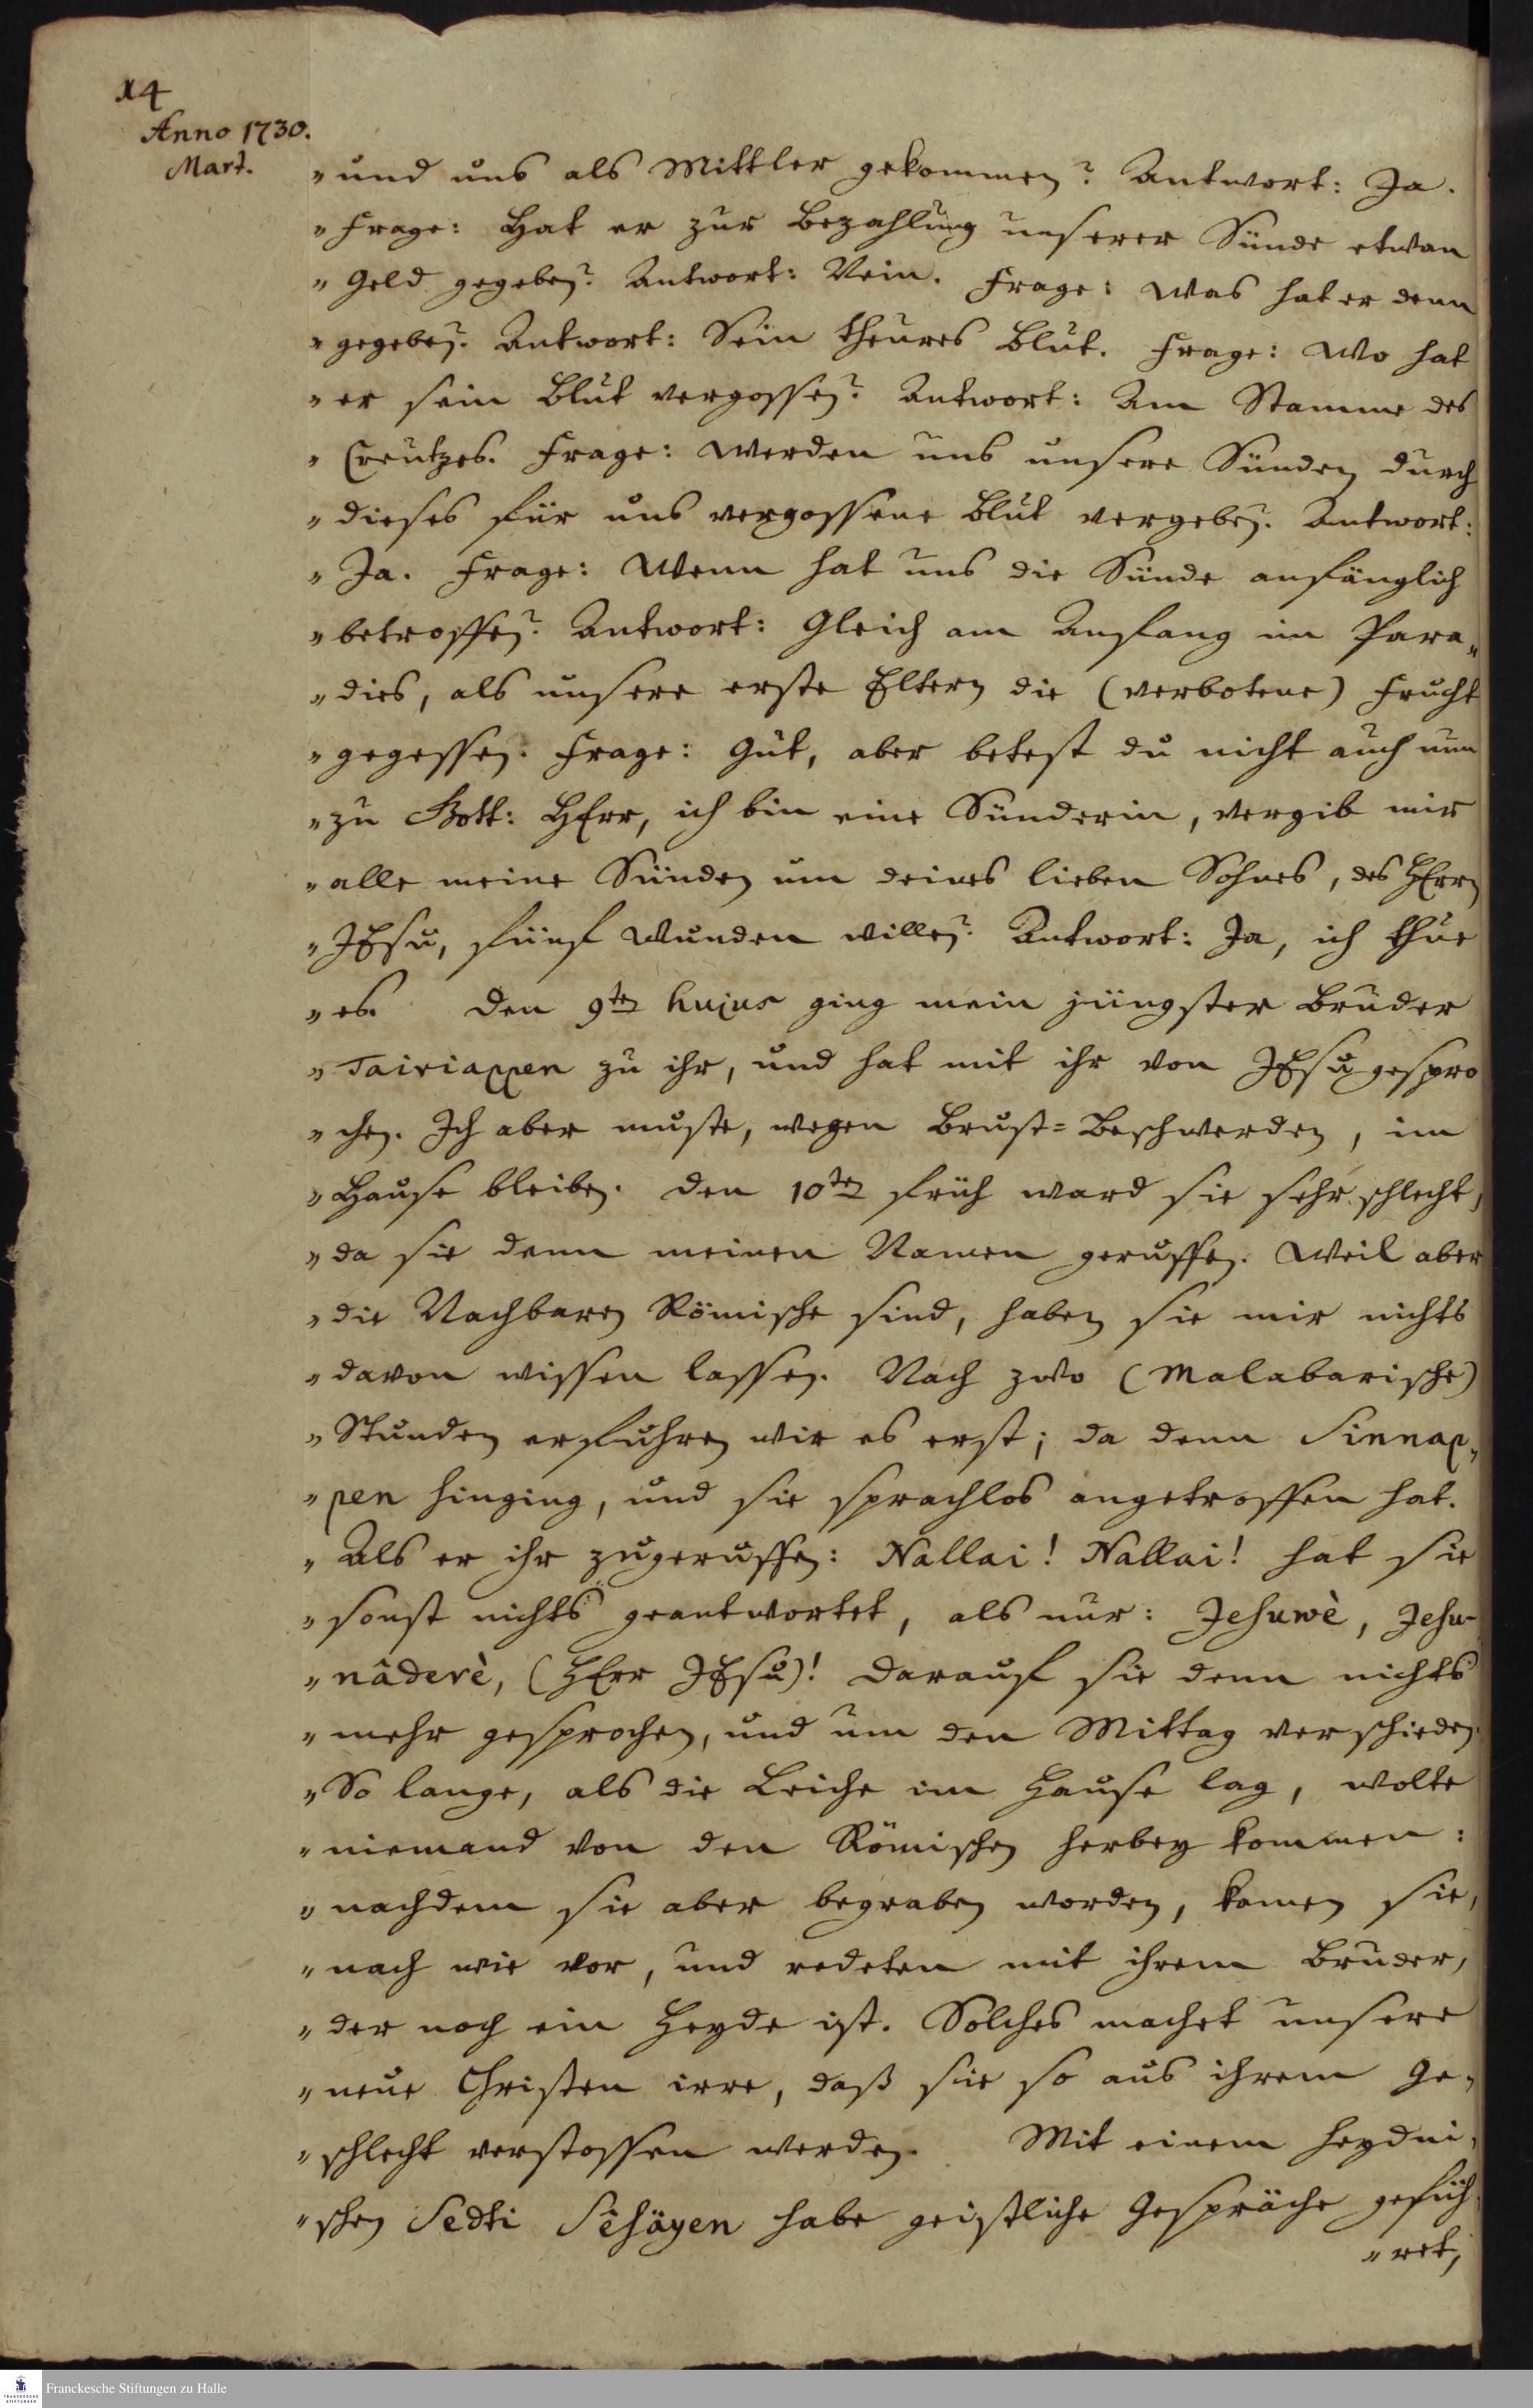 14
Anno 1730.
Mart.
„und uns als Mittler gekommen? Antwort: Ja.
„Frage: Hat er zur Bezahlung unserer Sünde etwan
„Geld gegeben? Antwort: Nein. Frage: Was hat er denn
„gegeben? Antwort: Sein theures Blut. Frage: Wo hat
„er sein Blut vergossen? Antwort: Am Stamme des
„Creutzes. Frage: Werden uns unsere Sünden durch
„dieses für uns vergossene Blut vergeben? Antwort:
„Ja. Frage: Wenn hat uns die Sünde anfänglich
„betroffen? Antwort: Gleich am Anfang im Para„
„dies, als unsere erste Eltern die (verbotene) Frucht
„gegessen. Frage: Gut, aber betest du nicht auch nun
„zu Gott: HErr, ich bin eine Sünderin, vergib mir
„alle meine Sünden um deines lieben Sohnes, des HErrn
„JEsu, fünf Wunden willen? Antwort: Ja, ich thue
„es. Den 9ten hujus ging mein jüngster Bruder
„Tairiappen zu ihr, und hat mit ihr von JEsu gespro
„chen. Ich aber muste, wegen Brust=Beschwerden, im
„Hause bleiben. Den 10ten früh ward sie sehr schlecht,
„da sie denn meinen Namen geruffen. Weil aber
„die Nachbaren Römische sind, haben sie mir nichts
„davon wissen lassen. Nach zwo (Malabarische)
„Stunden erfuhren wir es erst; da denn Sinnap„
„pen hinging, und sie sprachlos angetroffen hat.
„Als er ihr zugeruffen: Nallai! Nallai! hat sie
„sonst nichts geantwortet, als nur: Jesuwè, Jesu-
„nâderè, (HErr JEsu)! Darauf sie denn nichts
„mehr gesprochen, und um den Mittag verschieden.
„So lange, als die Leiche im Hause lag, wolte
„niemand von den Römischen herbey kommen:
„nachdem sie aber begraben worden, kamen sie,
„nach wie vor, und redeten mit ihrem Bruder,
„der noch ein Heyde ist. Solches machet unsere
„neue Christen irre, daß sie so aus ihrem Ge„
„schlecht verstossen werden. Mit einem heydni„
„schen Sedti Sêhäyen habe geistliche Gespräche gefüh„
„ret,
Franckesche Stiftungen zu Halle